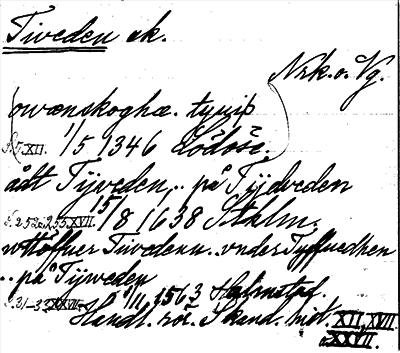 Tiveden sk.
Nrk. o. Vg.
owænskoghæ. tywiþ
S. 7. XII. 1/5 1346 Lödöse.
ådt Tijveden,.. på Tijdveden
S. 252 o. 255. XVII. 15/8 1638 Sthlm.
wttöffuer Tiwedenn.. vnder Tyffuedhen
.. på Tijweden
S. 31-33 XXVII. 1/11 1563 Halmstad.
Handl. rör. Skand. hist. XII, XVII
o. XXVII.